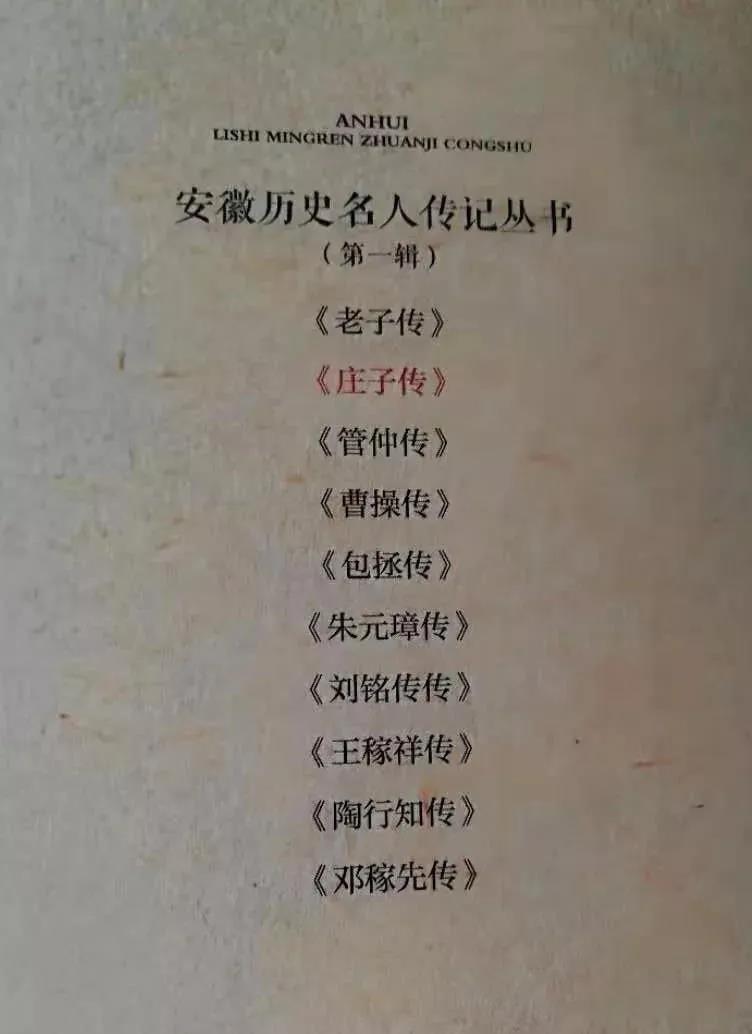 ANHUI
LISHI MINGREN ZHUANJI CONGSHU
安徽历史名人传记丛书
（第一辑）
《老子传》
《庄子传》
《管仲传》
《曹操传》
《包拯传》
《朱元璋传》
《刘铭传传》
《王稼祥传》
《陶行知传》
《邓稼先传》